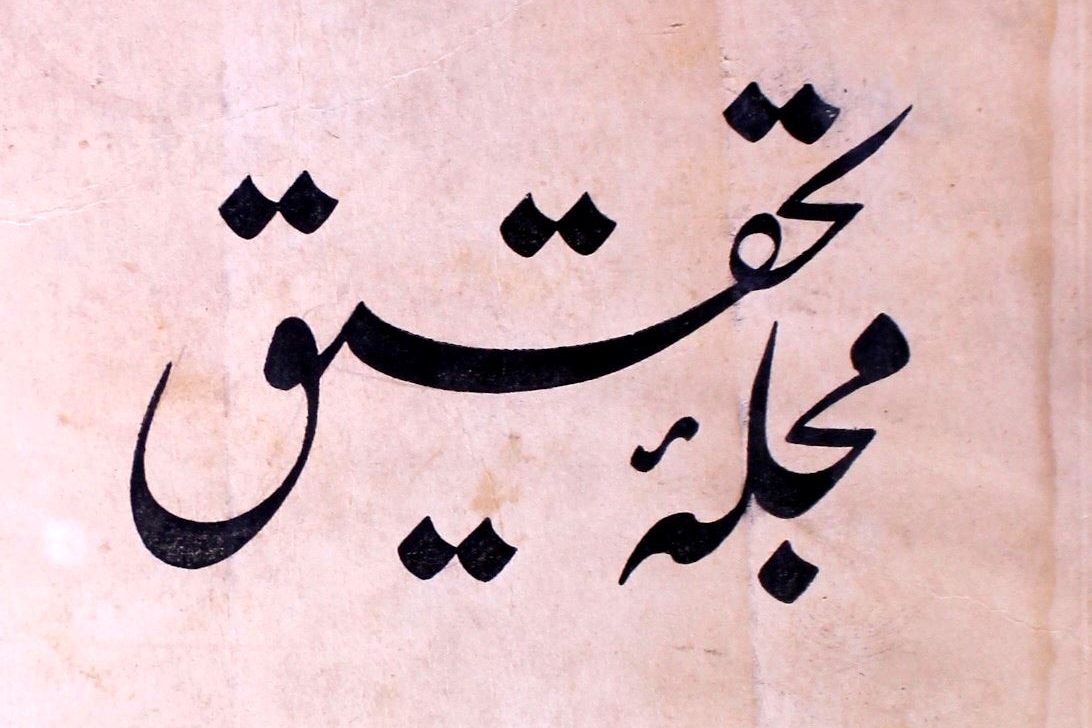 مجلۂ تحقیق